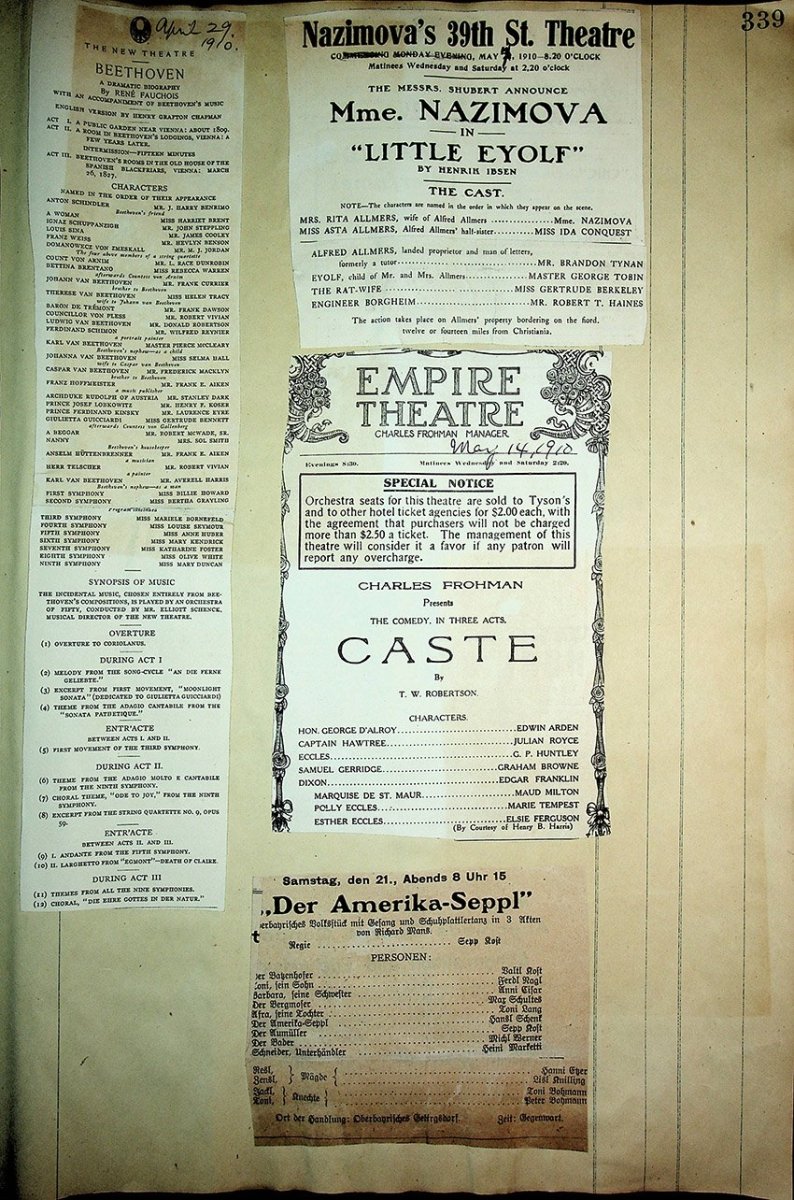 339
April 29.
1910.
THE NEW THEATRE
BEETHOVEN
A DRAMATIC BIOGRAPHY
By RENÉ FAUCHOIS
WITH AN ACCOMPANIMENT OF BEETHOVEN'S MUSIC
ENGLISH VERSION BY HENRY GRAFTON CHAPMAN
ACT I. A PUBLIC GARDEN NEAR VIENNA: ABOUT 1809.
ACT II. A ROOM IN BEETHOVEN'S LODGINGS, VIENNA: A
FEW YEARS LATER.
INTERMISSION—FIFTEEN MINUTES
ACT III. BEETHOVEN'S ROOMS IN THE OLD HOUSE OF THE
SPANISH BLACKFRIARS, VIENNA: MARCH
26, 1827.
CHARACTERS
NAMED IN THE ORDER OF THEIR APPEARANCE
ANTON SCHINDLER MR. J. HARRY BENRIMO
Beethoven's friend
A WOMAN MISS HARRIET BRENT
IGNAZ SCHUPPANZIGH MR. JOHN STEPPLING
LOUIS SINA MR. JAMES COOLEY
FRANZ WEISS MR. HEVLYN BENSON
DOMANOWECZ VON ZMESKALL MR. M. J. JORDAN
The four above members of a string quartette
COUNT VON ARNIM MR. L. RACE DUNROBIN
BETTINA BRENTANO MISS REBECCA WARREN
afterwards Countess von Arnim
JOHANN VAN BEETHOVEN MR. FRANK CURRIER
brother to Beethoven
THERESE VAN BEETHOVEN MISS HELEN TRACY
wife to Johann van Beethoven
BARON DE TRÉMONT MR. FRANK DAWSON
COUNCILLOR VON PLESS MR. ROBERT VIVIAN
LUDWIG VAN BEETHOVEN MR. DONALD ROBERTSON
FERDINAND SCHIMON MR. WILFRED REYNIER
a portrait painter
KARL VAN BEETHOVEN MASTER PIERCE MCCLEARY
Beethoven's nephew—as a child
JOHANNA VAN BEETHOVEN MISS SELMA HALL
wife to Caspar van Beethoven
CASPAR VAN BEETHOVEN MR. FREDERICK MACKLYN
brother to Beethoven
FRANZ HOFFMEISTER MR. FRANK E. AIKEN
a music publisher
ARCHDUKE RUDOLPH OF AUSTRIA MR. STANLEY DARK
PRINCE JOSEF LOBKOWITZ MR. HENRY F. KOSER
PRINCE FERDINAND KINSKY MR. LAURENCE EYRE
GIULIETTA GUICCIARDI MISS GERTRUDE BENNETT
afterwards Countess von Gallenberg
A BEGGAR MR. ROBERT MCWADE, SR.
NANNY MRS. SOL SMITH
Beethoven's housekeeper
ANSELM HÜTTENBRENNER MR. FRANK E. AIKEN
a musician
HERR TELSCHER MR. ROBERT VIVIAN
a painter
KARL VAN BEETHOVEN MR. AVERELL HARRIS
Beethoven's nephew—as a man
FIRST SYMPHONY MISS BILLIE HOWARD
SECOND SYMPHONY MISS BERTHA GRAYLING
THIRD SYMPHONY MISS MARIELE BORNEFELD
FOURTH SYMPHONY MISS LOUISE SEYMOUR
FIFTH SYMPHONY MISS ANNE HUBER
SIXTH SYMPHONY MISS MARY KENDRICK
SEVENTH SYMPHONY MISS KATHARINE FOSTER
EIGHTH SYMPHONY MISS OLIVE WHITE
NINTH SYMPHONY MISS MARY DUNCAN
SYNOPSIS OF MUSIC
THE INCIDENTAL MUSIC, CHOSEN ENTIRELY FROM BEE-
THOVEN'S COMPOSITIONS, IS PLAYED BY AN ORCHESTRA
OF FIFTY, CONDUCTED BY MR. ELLIOTT SCHENCK,
MUSICAL DIRECTOR OF THE NEW THEATRE.
OVERTURE
(1) OVERTURE TO CORIOLANUS.
DURING ACT I
(2) MELODY FROM THE SONG-CYCLE "AN DIE FERNE
GELIEBTE."
(3) EXCERPT FROM FIRST MOVEMENT, "MOONLIGHT
SONATA" (DEDICATED TO GIULIETTA GUICCIARDI)
(4) THEME FROM THE ADAGIO CANTABILE FROM THE
"SONATA PATHETIQUE."
ENTR'ACTE
BETWEEN ACTS I. AND II.
(5) FIRST MOVEMENT OF THE THIRD SYMPHONY.
DURING ACT II.
(6) THEME FROM THE ADAGIO MOLTO E CANTABILE
FROM THE NINTH SYMPHONY.
(7) CHORAL THEME, "ODE TO JOY," FROM THE NINTH
SYMPHONY.
(8) EXCERPT FROM THE STRING QUARTETTE NO. 9, OPUS
59.
ENTR'ACTE
BETWEEN ACTS II. AND III.
(9) I. ANDANTE FROM THE FIFTH SYMPHONY.
(10) II. LARGHETTO FROM "EGMONT"—DEATH OF CLAIRE.
DURING ACT III
(11) THEMES FROM ALL THE NINE SYMPHONIES.
(12) CHORAL, "DIE EHRE GOTTES IN DER NATUR."
Nazimova's 39th St. Theatre
COMMENCING MONDAY EVENING, MAY 1910—8.20 O'CLOCK
Matinees Wednesday and Saturday at 2.20 o'clock
THE MESSRS. SHUBERT ANNOUNCE
Mme. NAZIMOVA
IN
"LITTLE EYOLF"
BY HENRIK IBSEN
THE CAST.
NOTE—The characters are named in the order in which they appear on the scene.
MRS. RITA ALLMERS, wife of Alfred Allmers ..............Mme. NAZIMOVA
MISS ASTA ALLMERS, Alfred Allmers' half-sister..........MISS IDA CONQUEST
ALFRED ALLMERS, landed proprietor and man of letters,
formerly a tutor................................MR. BRANDON TYNAN
EYOLF, child of Mr. and Mrs. Allmers...............MASTER GEORGE TOBIN
THE RAT-WIFE................................MISS GERTRUDE BERKELEY
ENGINEER BORGHEIM..........................MR. ROBERT T. HAINES
The action takes place on Allmers' property bordering on the fiord.
twelve or fourteen miles from Christiania.
EMPIRE
THEATRE
CHARLES FROHMAN MANAGER
May 14, 1910
Evenings 8:30. Matinees Wednesday and Saturday 2:20.
SPECIAL NOTICE
Orchestra seats for this theatre are sold to Tyson's
and to other hotel ticket agencies for $2.00 each, with
the agreement that purchasers will not be charged
more than $2.50 a ticket. The management of this
theatre will consider it a favor if any patron will
report any overcharge.
CHARLES FROHMAN
Presents
THE COMEDY, IN THREE ACTS,
CASTE
By
T. W. ROBERTSON.
CHARACTERS.
HON. GEORGE D'ALROY.........................EDWIN ARDEN
CAPTAIN HAWTREE.............................JULIAN ROYCE
ECCLES......................................G. P. HUNTLEY
SAMUEL GERRIDGE.............................GRAHAM BROWNE
DIXON.......................................EDGAR FRANKLIN
MARQUISE DE ST. MAUR........................MAUD MILTON
POLLY ECCLES................................MARIE TEMPEST
ESTHER ECCLES...............................ELSIE FERGUSON
(By Courtesy of Henry B. Harris)
Samstag, den 21., Abends 8 Uhr 15
„Der Amerika-Seppl"
erbayrisches Volksstück mit Gesang und Schuhplattlertanz in 3 Akten
t
von Richard Manz.
Regie ........................ Sepp Kost
PERSONEN:
Der Batzenhofer ........................ Valtl Kost
Toni, sein Sohn ........................ Ferdl Nagl
Barbara, seine Schwester ........................ Anni Cisar
Der Bergmoser ........................ Max Schultes
Afra, seine Tochter ........................ Toni Lang
Der Amerika-Seppl ........................ Hansl Schenk
Der Aumüller ........................ Sepp Kost
Der Bader ........................ Michl Werner
Schneider, Unterhändler ........................ Heini Marketti
Resl, } Mägde { ........................ Hanni Etzer
Zensl, ........................ Lisl Knilling
Jackl, } Knechte { ........................ Toni Bohmann
Toni, ........................ Peter Bohmann
Ort der Handlung: Oberbayrisches Gebirgsdorf. Zeit: Gegenwart.